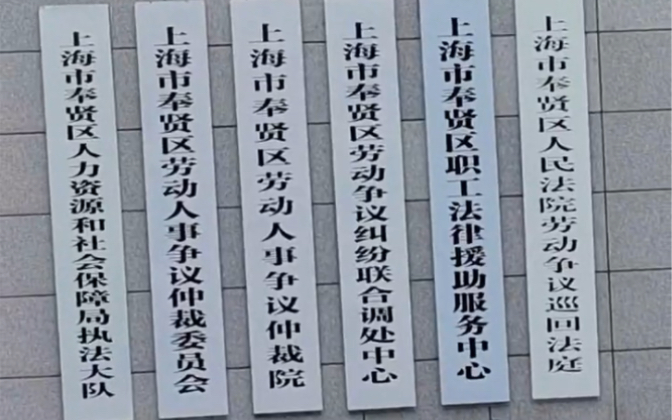 上海市奉贤区人力资源和社会保障局执法大队
上海市奉贤区劳动人事争议仲裁委员会
上海市奉贤区劳动人事争议仲裁院
上海市奉贤区劳动争议纠纷联合调处中心
上海市奉贤区职工法律援助服务中心
上海市奉贤区人民法院劳动争议巡回法庭